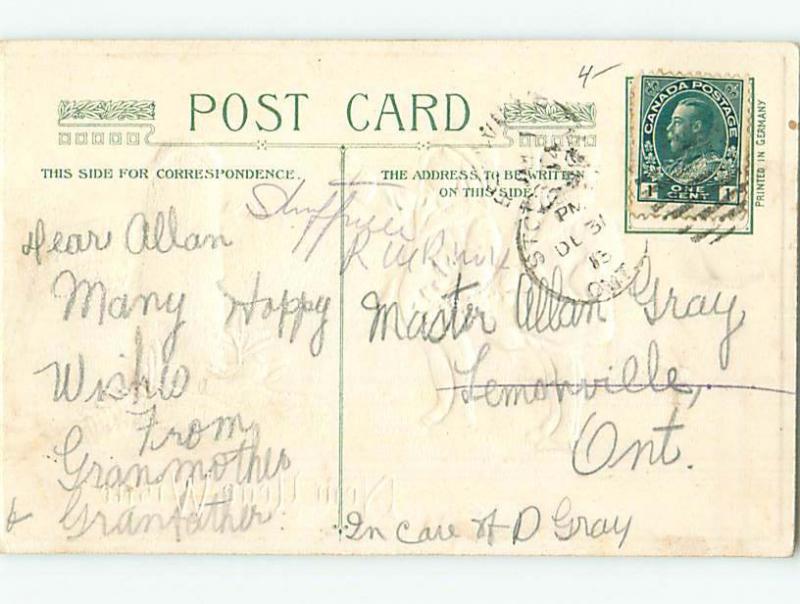 4-
POST CARD
THIS SIDE FOR CORRESPONDENCE.
THE ADDRESS TO BE WRITTEN
ON THIS SIDE
CANADA POSTAGE
1 ONE CENT 1
PRINTED IN GERMANY
PM
DE 31
13
ONT
Dear Allan
Many Happy
Wishes
From
Granmother
& Granfather.
Master Allan Gray
Lemonville,
Ont.
In care of D Gray